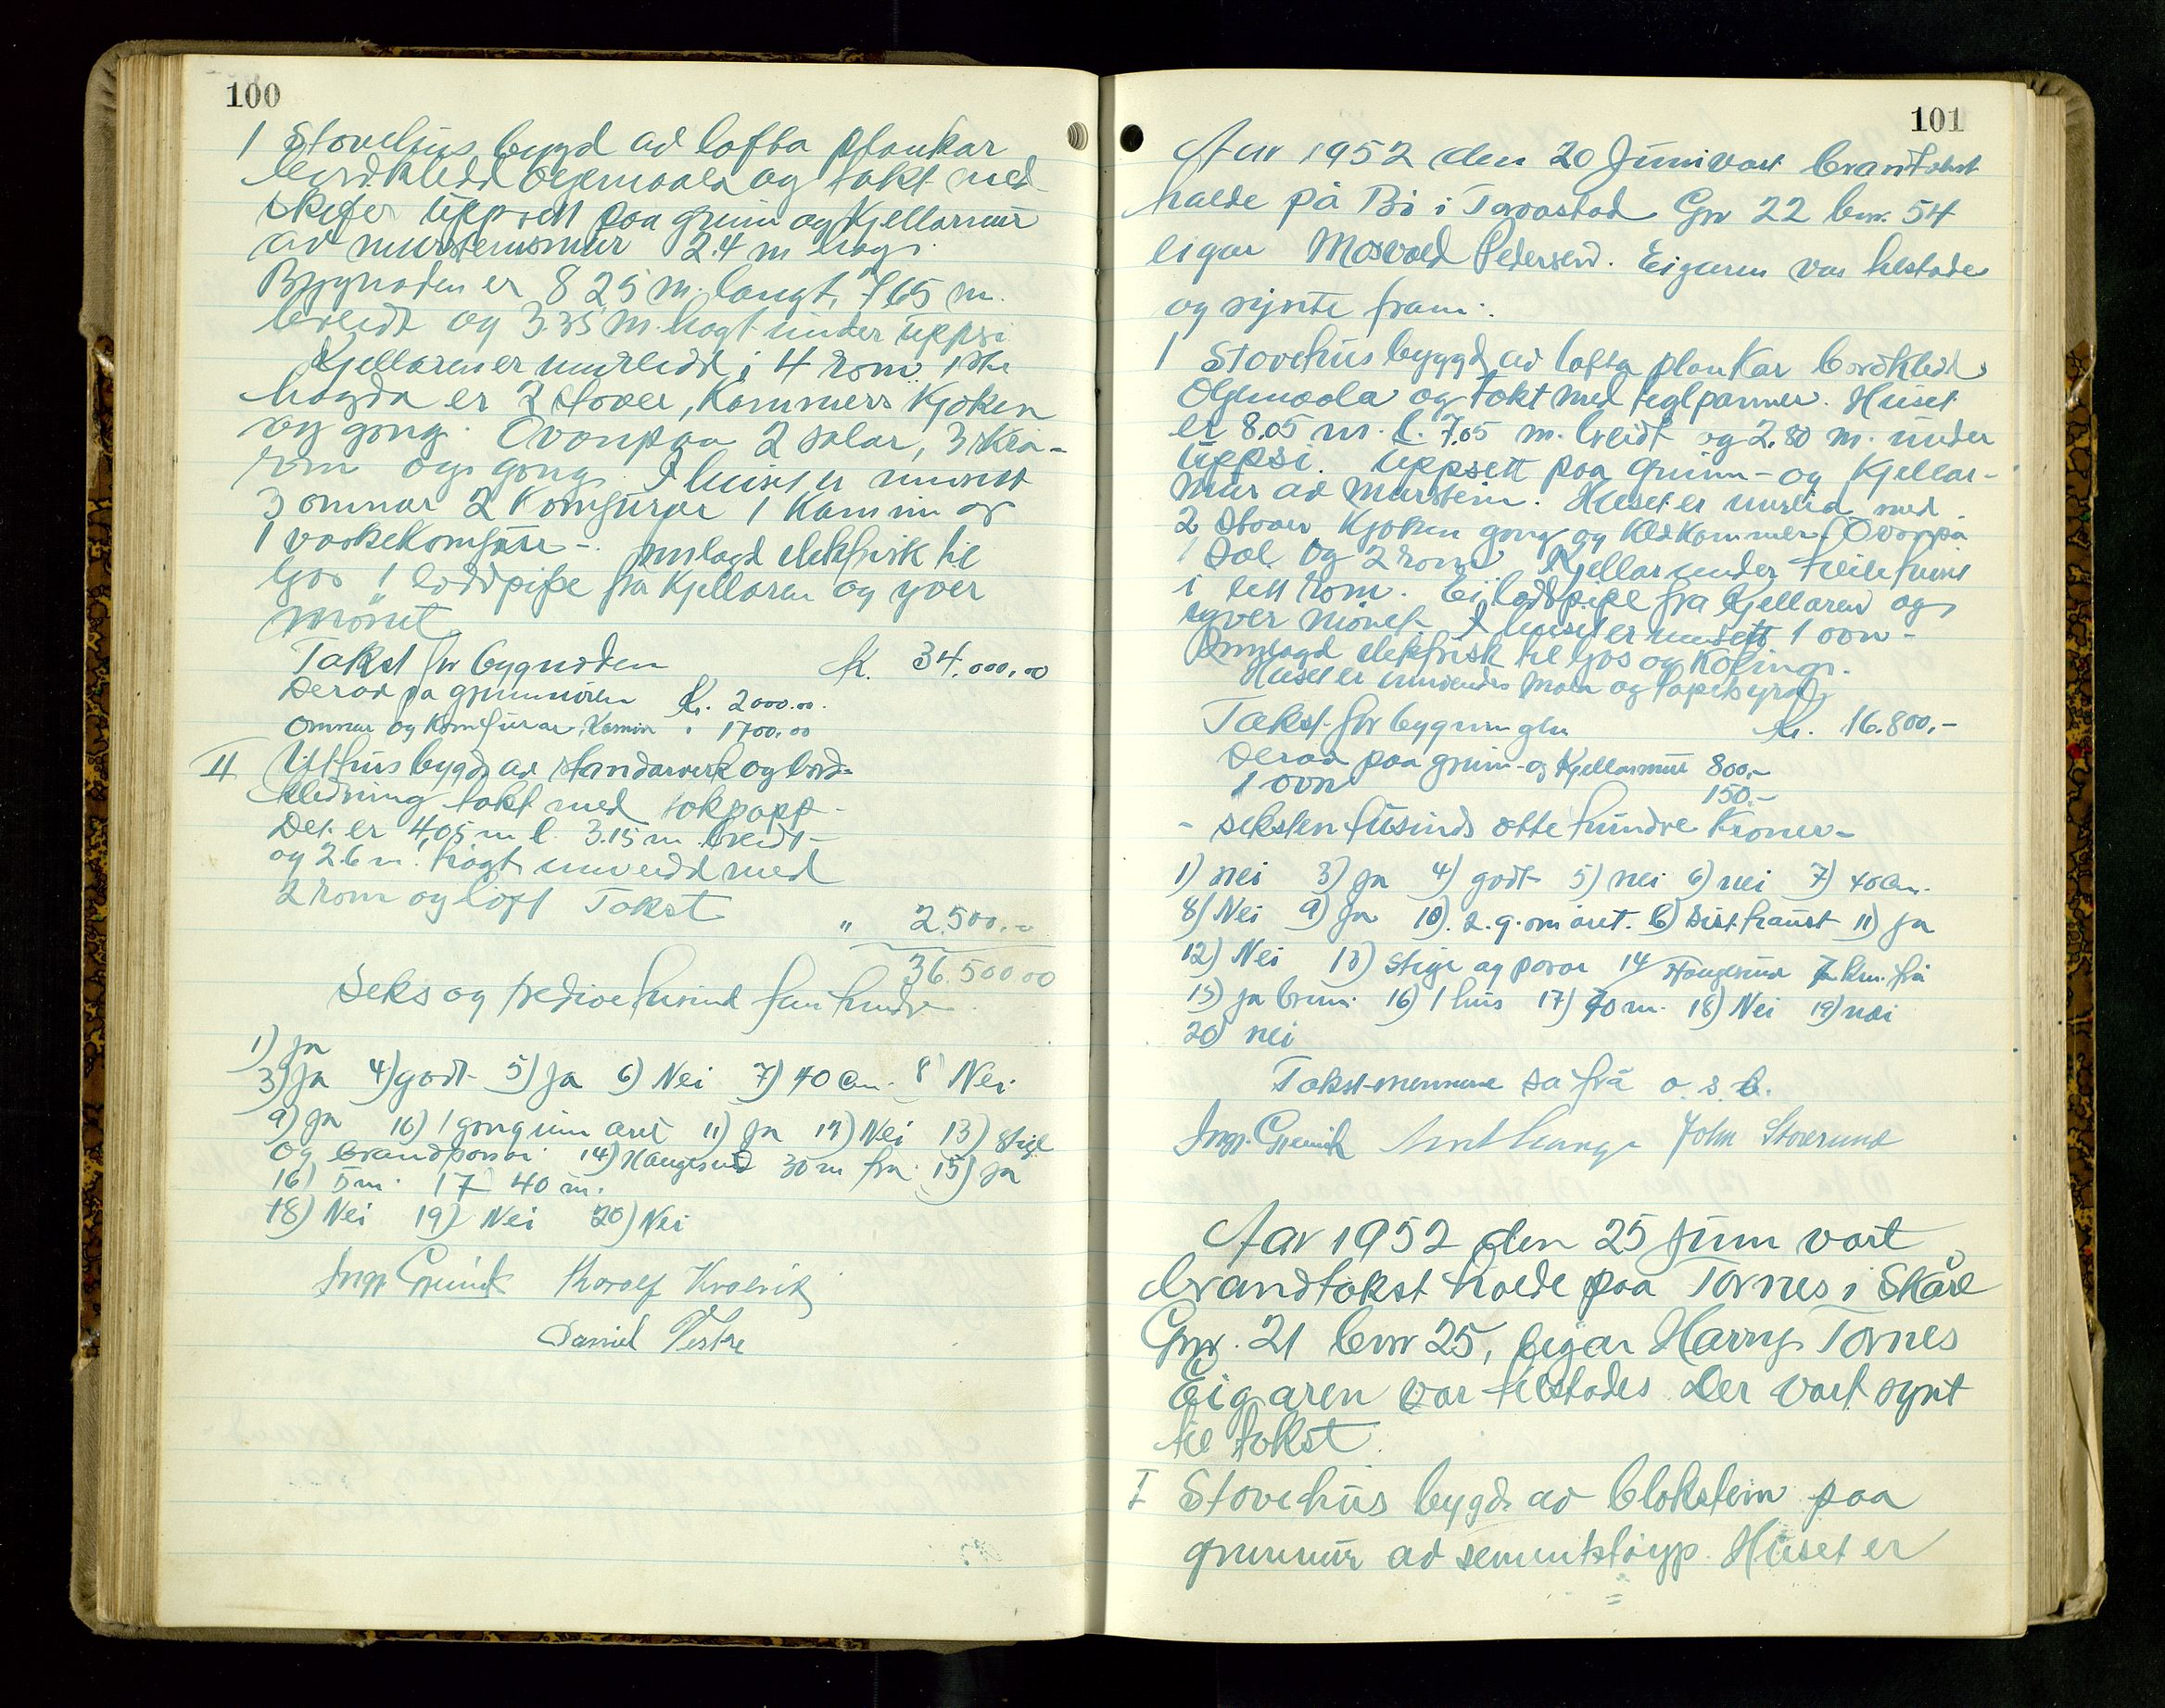 100
1 Stovehus bygd ad lafta plankar
bordkledd oljemaala og takt med
skifer uppsett paa grunn og Kjellarmur
av murstensmur 2.4 m høg.
Bygnaden er 8 25 m. langt, 7 65 m.
breidt og 3.35 m. høgt under uppsi
Kjellaren er innreidd i 4 rom, 1ste
høgda er 2 stover, Kammers Kjøken
og gong. Ovanpaa 2 salar, 3 Krå-
rom og gong. I huset er innsett
3 omnar 2 Komfurar 1 Kamin og
1 vaskekomfure -. innlagd elektrisk til
ljos 1 loddpipe fra Kjellaren og yver
mønet
Takst for bygnaden Kr. 34.000,00
Derav pa grunnmuren Kr. 2000.00.
Omnar og Komfurar, Kamin " 1700,00
II Uthus bygd av standarverk og bord-
kledning takt med takpapp -
Det er 4,05 m l. 3.15 m. breidt -
og 2.6 m. høgt innreidd med
2 rom og loft Takst
" 2.500.-
36.500.00
Seks og tredive tusind fem hundre
1) Ja
3) Ja 4) godt 5) Ja 6) Nei 7) 40 Cm. 8 Nei.
9) Ja 10) 1 gong um aret 11) Ja 12) Nei 13) Stige
og brandposar. 14) Haugesund 30 m fra. 15) Ja
16) 5 m. 17 40 m.
18) Nei 19) Nei 20) Nei
Ingv. Gjerdevik Thoralf Kvalvik
Daniel Vestre
101
Aar 1952 den 20 Juni vart brandtakst
halde på Bø i Torvastad Gnr 22 bnr. 54
eigar Mosvald Pedersen. Eigaren var tilstades
og synte fram:
1 Stovehus byggd ad lafta plankar bordkledd
Oljemaala og takt med teglpanner. Huset
er 8.05 m. l. 7.05 m. breidt og 2.80 m. under
uppsi. Uppsett paa Grunn- og Kjellar-
mur ad murstein. Huset er innreid med
2 stover Kjøken gong og Kledkammer. Ovanpå
1 sal og 2 rom. Kjellar under heile huset
i eitt rom. Ei loddpipe fra Kjellaren og
yver mønet. I huset er innsett 1 ovn -
Innlagd elektrisk til ljos og Koking.
Huset er innvendes mala og tapetsyrd
Takst for bygningen Kr. 16.800,-
Derav paa grunn- og Kjellarmur 800,-
1 ovn 150.-
- seksten tusinds otte hundre Kroner -
1) nei 3) ja 4) godt 5) nei 6) nei 7) 40 Cm.
8) Nei 9) Ja 10). 2. g. om året. b) Sist haust 11) Ja
12) Nei 13) Stige og posar 14 Haugesund 7 km. frå
15) ja brun. 16) 1 hus 17) 70 m. 18) Nei 19) nei
20) nei
Takst-mennene sa frå o. s. b.
Ingv. Gjerdevik John Storesund
Aar 1952 den 25 Juni vart
brandtakst halde paa Tornes i Skåre
Gnr. 21 bnr 25, eigar Harry Tornes
Eigaren var tilstades Der vart synt
til takst.
I Stovehus bygd av blokstein paa
grunnmur ad sementstøyp. Huset er